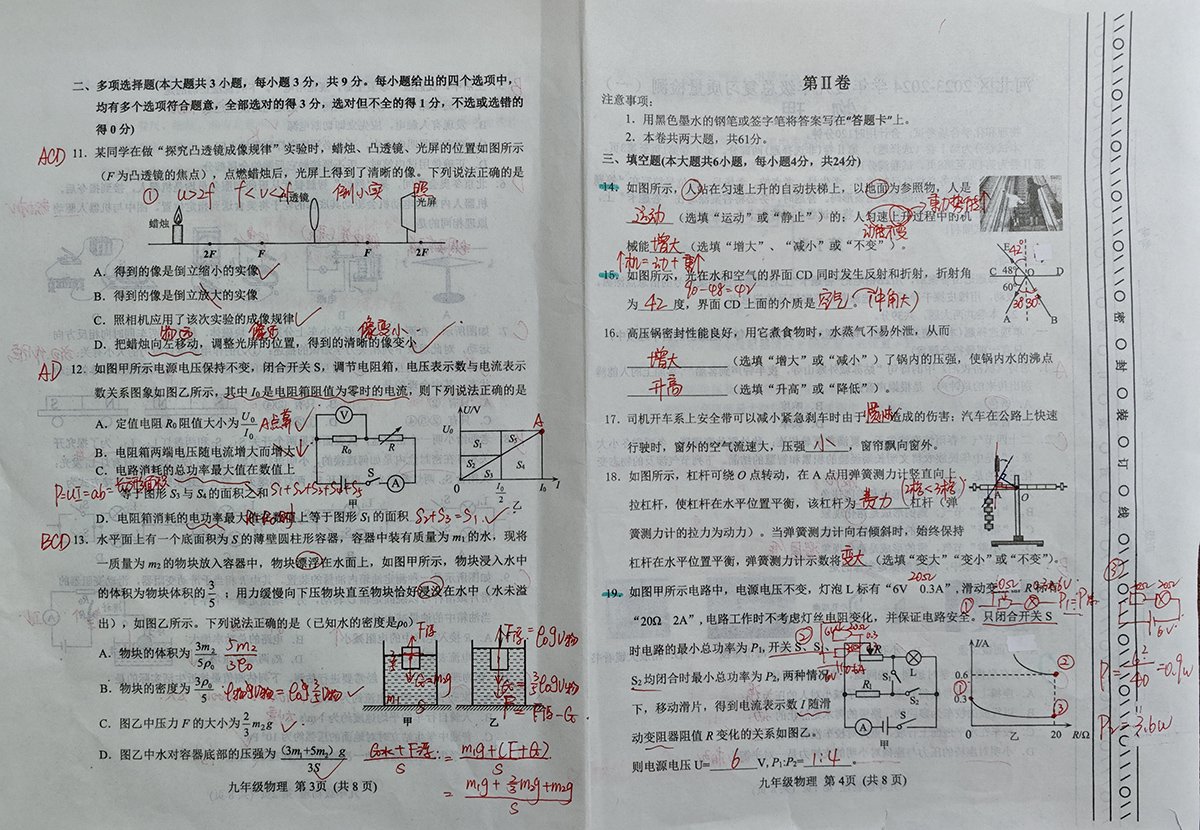 二、多项选择题(本大题共3小题，每小题3分，共9分。每小题给出的四个选项中，
均有多个选项符合题意，全部选对的得3分，选对但不全的得1分，不选或选错的
得0分)
ACD 11. 某同学在做“探究凸透镜成像规律”实验时，蜡烛、凸透镜、光屏的位置如图所示
（F为凸透镜的焦点），点燃蜡烛后，光屏上得到了清晰的像。下列说法正确的是
① u>2f f<v<2f 倒小实 照
透镜 光屏
蜡烛
2F F F 2F
A. 得到的像是倒立缩小的实像
B. 得到的像是倒立放大的实像
C. 照相机应用了该次实验的成像规律
物远 像近 像变小
D. 把蜡烛向左移动，调整光屏的位置，得到的清晰的像变小
AD 12. 如图甲所示电源电压保持不变，闭合开关S，调节电阻箱，电压表示数与电流表示
数关系图象如图乙所示，其中I₀是电阻箱阻值为零时的电流，则下列说法正确的是
A. 定值电阻R₀阻值大小为 U₀/I₀ A点算
B. 电阻箱两端电压随电流增大而增大
C. 电路消耗的总功率最大值在数值上
P=UI=ab=长方形面积
等于图形S₃与S₄的面积之和 S₁+S₂+S₃+S₄+S₅
D. 电阻箱消耗的电功率最大值在数值上等于图形S₁的面积 S₂+S₃=S₁
V R₀ R S A 甲
U/V U₀ S₁ S₅ S₂ S₃ S₄ A 0 I₀/2 I₀ I 乙
BCD 13. 水平面上有一个底面积为S的薄壁圆柱形容器，容器中装有质量为m₁的水，现将
一质量为m₂的物块放入容器中，物块漂浮在水面上，如图甲所示，物块浸入水中
的体积为物块体积的 3/5 ；用力缓慢向下压物块直至物块恰好浸没在水中（水未溢
出），如图乙所示。下列说法正确的是（已知水的密度是ρ₀）
A. 物块的体积为 3m₂/5ρ₀ 5m₂/3ρ₀
B. 物块的密度为 3ρ₀/5 ρ物gV物=ρ₀g3/5V物
C. 图乙中压力F的大小为 2/3 m₂g
D. 图乙中水对容器底部的压强为 (3m₁+5m₂)g/3S
G水+F浮/S = m₁g+(F+G)/S
= m₁g+2/3m₂g+m₂g/S
F浮 G=m₂g 甲
F浮=ρ₀gV物 G=3/5ρ₀gV物 F=F浮-G 乙
九年级物理 第3页（共8页）
第Ⅱ卷
注意事项：
1. 用黑色墨水的钢笔或签字笔将答案写在“答题卡”上。
2. 本卷共两大题，共61分。
三、填空题(本大题共6小题，每小题4分，共24分)
14. 如图所示，人站在匀速上升的自动扶梯上，以地面为参照物，人是
运动 （选填“运动”或“静止”）的；人匀速上升过程中的机
重力势能↑
动能不变
械能 增大 （选填“增大”、“减小”或“不变”）。
↑机=动+重↑
15. 如图所示，光在水和空气的界面CD同时发生反射和折射，折射角
90-48=42
为 42 度，界面CD上面的介质是 空气 。（空气中角大）
E 42° C 48° O D 60° 38 30° A B
16. 高压锅密封性能良好，用它煮食物时，水蒸气不易外泄，从而
增大 （选填“增大”或“减小”）了锅内的压强，使锅内水的沸点
升高 （选填“升高”或“降低”）。
17. 司机开车系上安全带可以减小紧急刹车时由于 惯性 造成的伤害；汽车在公路上快速
行驶时，窗外的空气流速大，压强 小 ，窗帘飘向窗外。
18. 如图所示，杠杆可绕O点转动，在A点用弹簧测力计竖直向上
拉杠杆，使杠杆在水平位置平衡，该杠杆为 费力 杠杆（弹
簧测力计的拉力为动力）。当弹簧测力计向右倾斜时，始终保持
杠杆在水平位置平衡，弹簧测力计示数将 变大 （选填“变大”“变小”或“不变”）。
A O
19. 如图甲所示电路中，电源电压不变，灯泡L标有“6V 0.3A”，滑动变阻器R标有
20Ω
“20Ω 2A”，电路工作时不考虑灯丝电阻变化，并保证电路安全。只闭合开关S
时电路的最小总功率为P₁，开关S、S₁、
S₂均闭合时最小总功率为P₂，两种情况
下，移动滑片，得到电流表示数I随滑
动变阻器阻值R变化的关系如图乙。
则电源电压U= 6 V，P₁:P₂= 1:4 。
R L S₁ R₁ S₂ A S 甲
I/A 0.6 0.3 ① ② ③ 0 乙 20 R/Ω
③ 20Ω 20Ω 6V
P₁=6²/40=0.9W
P₂=3.6W
九年级物理 第4页（共8页）
密 封 装 订 线